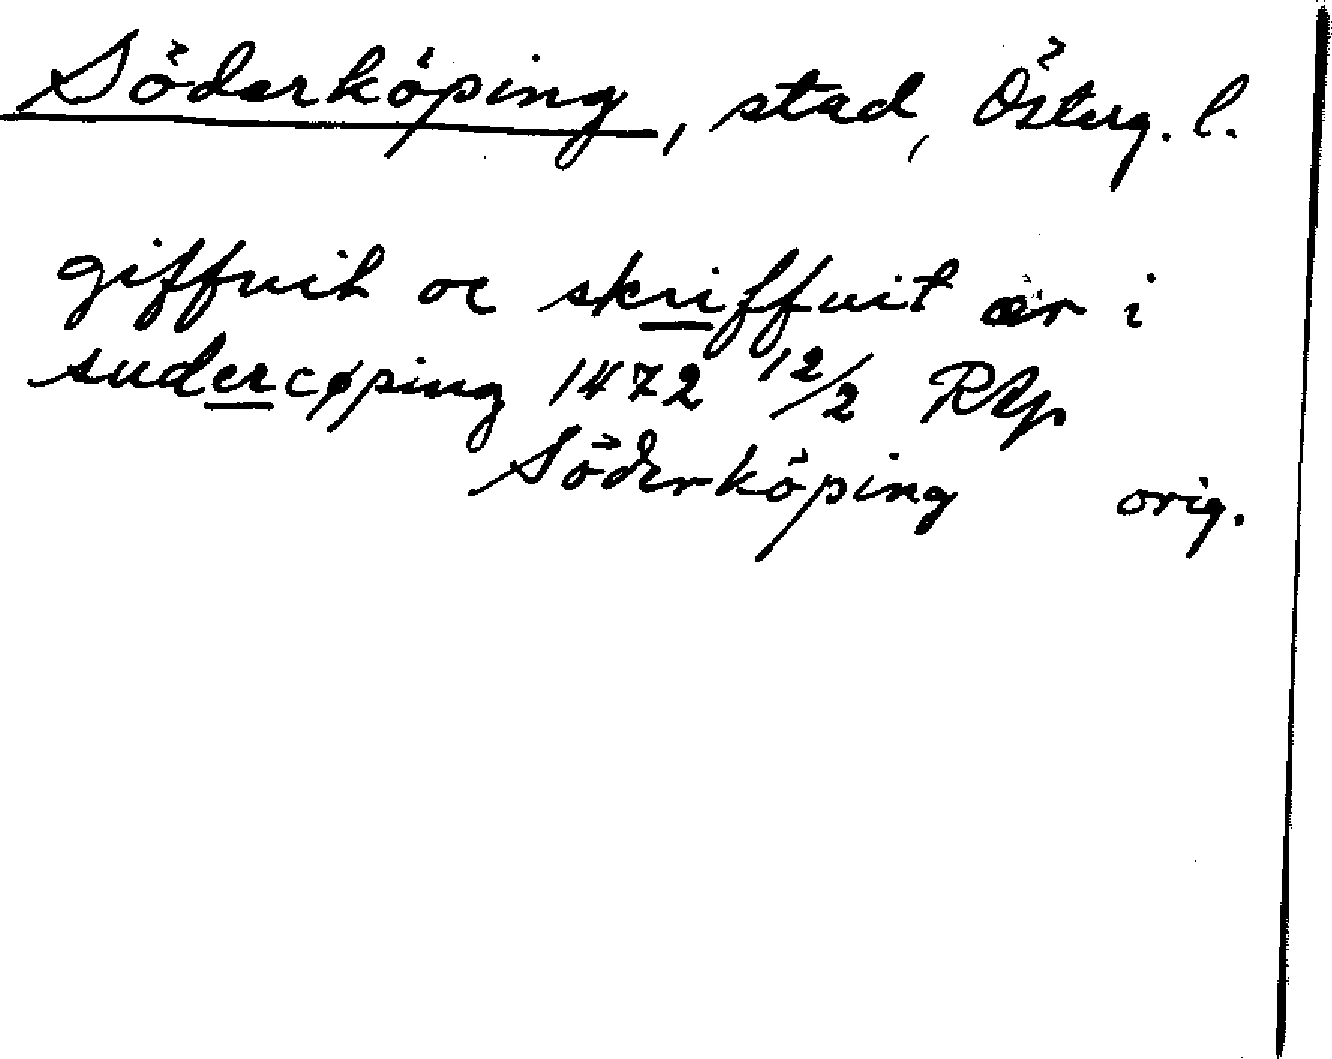 Söderköping, stad, Österg. l.
giffuit oc skriffuit ær i
sudercøping 1472 12/2 RAp
Söderköping orig.